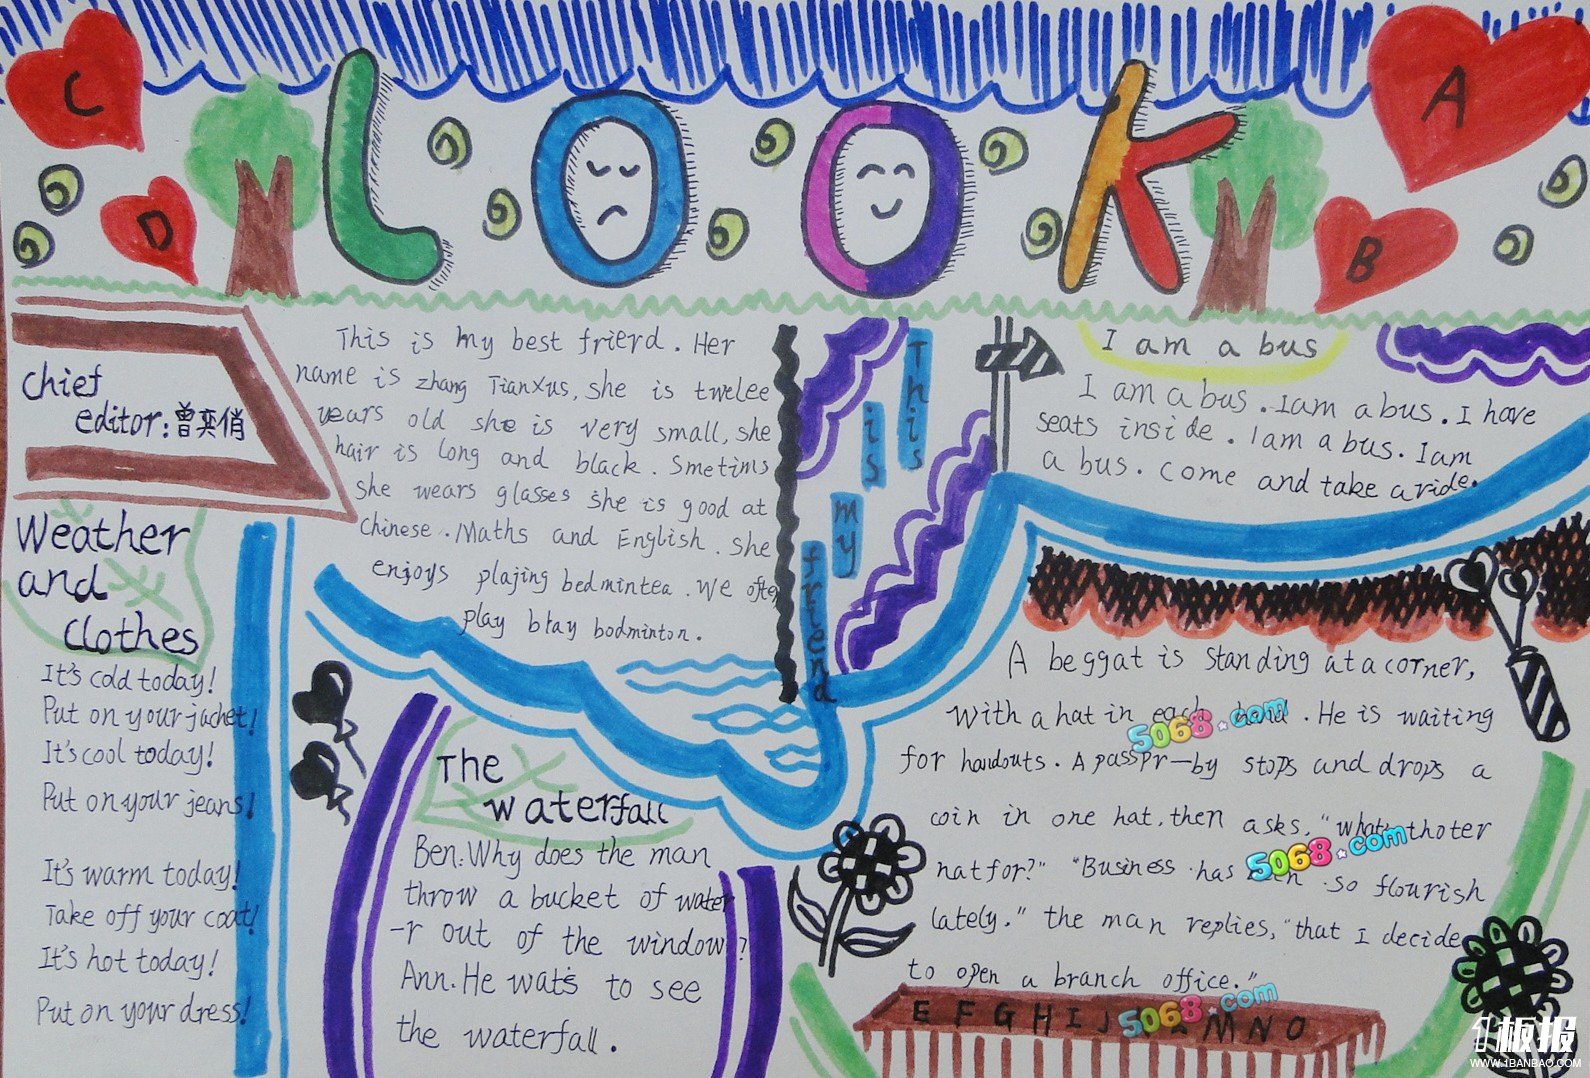 C
D
LOOK
A
B
Chief
editor:曾奕俏
This is my best frierd. Her
name is zhang TianXus, she is twelee
years old she is very small, she
hair is long and black. Smetims
she wears glasses she is good at
Chinese. Maths and English. she
enjoys plajing bedmintea. We often
play btay bodminton.
This
is
my
friend
I am a bus
I am a bus. Iam a bus. I have
seats inside. Iam a bus. Iam
a bus. come and take aride.
Weather
and
Clothes
It's cold today!
Put on your jachet!
It's cool today!
Put on your jeans!
It's warm today!
Take off your coat!
It's hot today!
Put on your dress!
The
waterfall
Ben:Why does the man
throw a bucket of water
-r out of the window?
Ann.He wats to see
the waterfall.
A beggat is standing at a corner,
With a hat in each. He is waiting
for handouts. A passpr-by stops and drops a
coin in one hat, then asks, "what thoter
hat for?" "Business has so flourish
lately." the man replies, "that I decide
to open a branch office."
E F G H I J M N O
5068.com
5068.com
5068.com
1板报
WWW.1BANBAO.COM